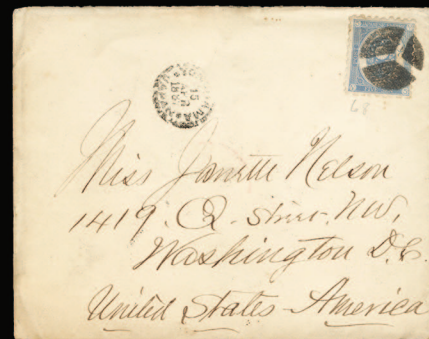 15
APR
188
JAPAN
68
Miss Janette Nelson
1419. Q. Street. NW.
Washington D.C.
United States - America